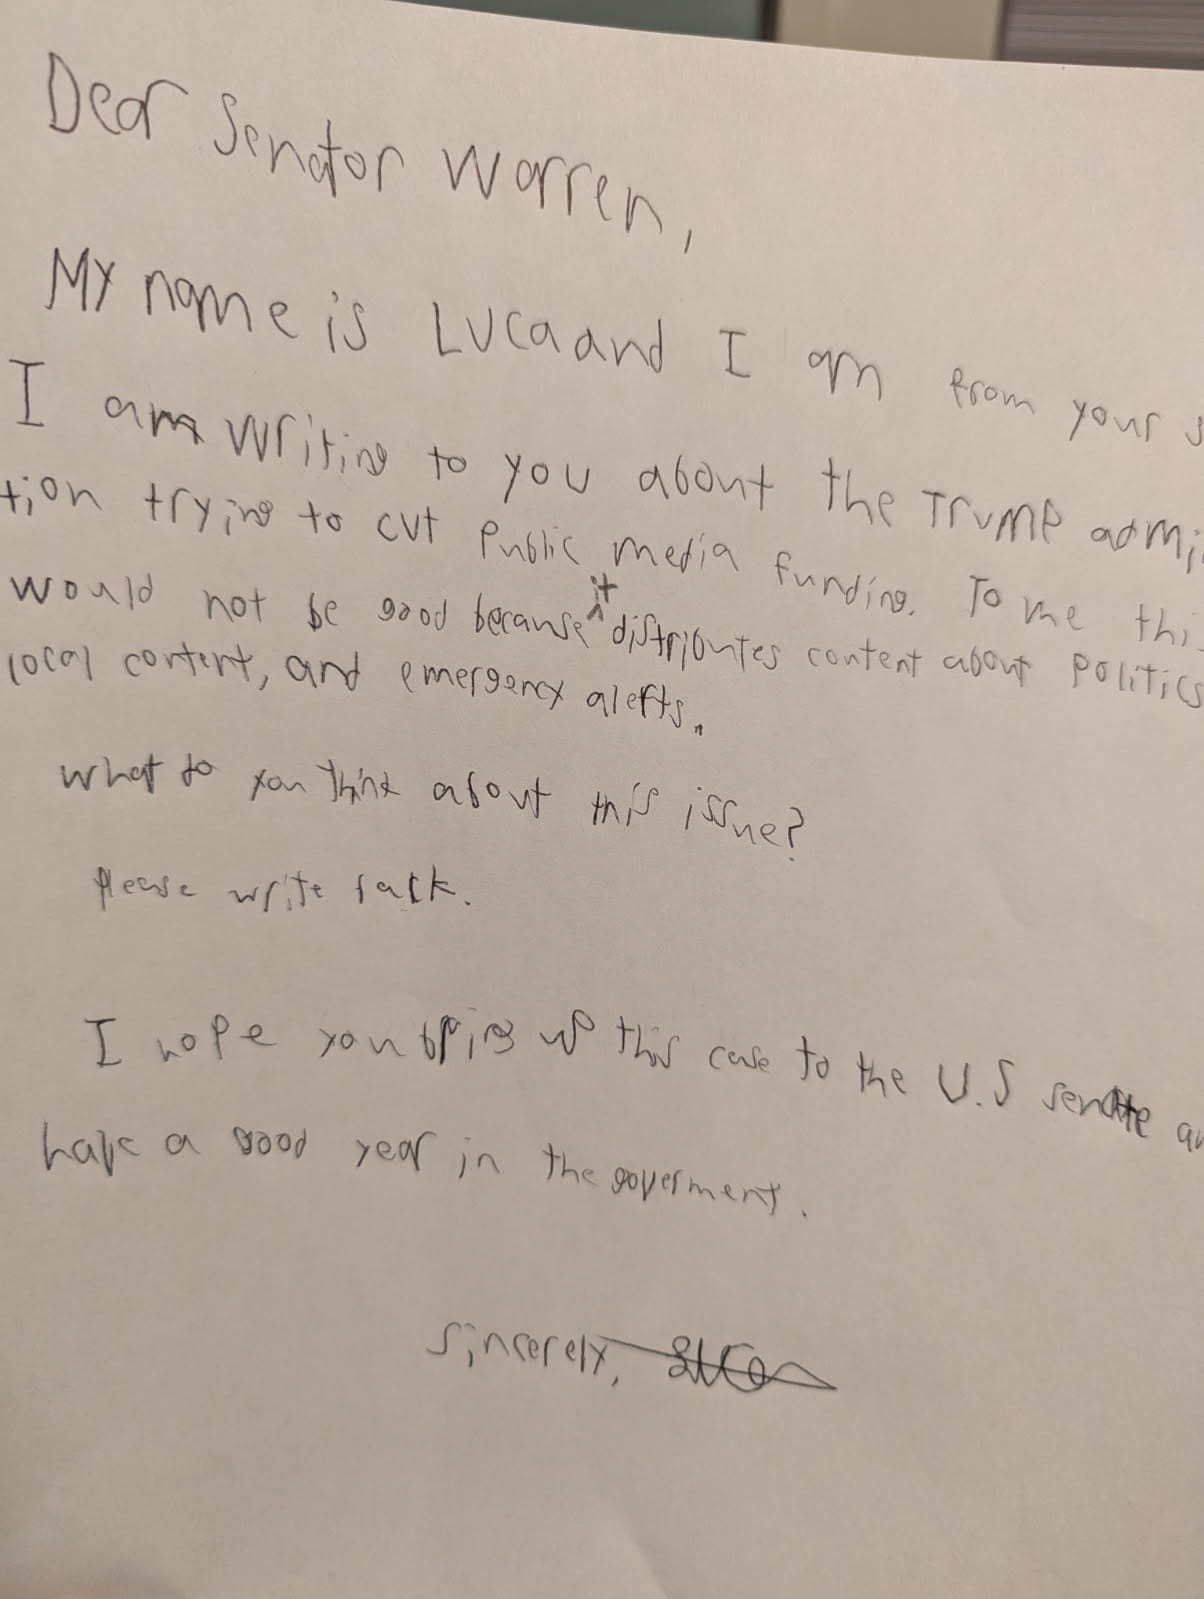 Dear Senator Warren,
My name is Luca and I am from your s
I am writing to you about the Trump admi
tion trying to cut public media funding. To me thi
would not be good because it distributes content about politics
local content, and emergency alerts.
what do you think about this issue?
please write back.
I hope you bring up this case to the U.S senate
have a good year in the goverment.
sincerely, Luca